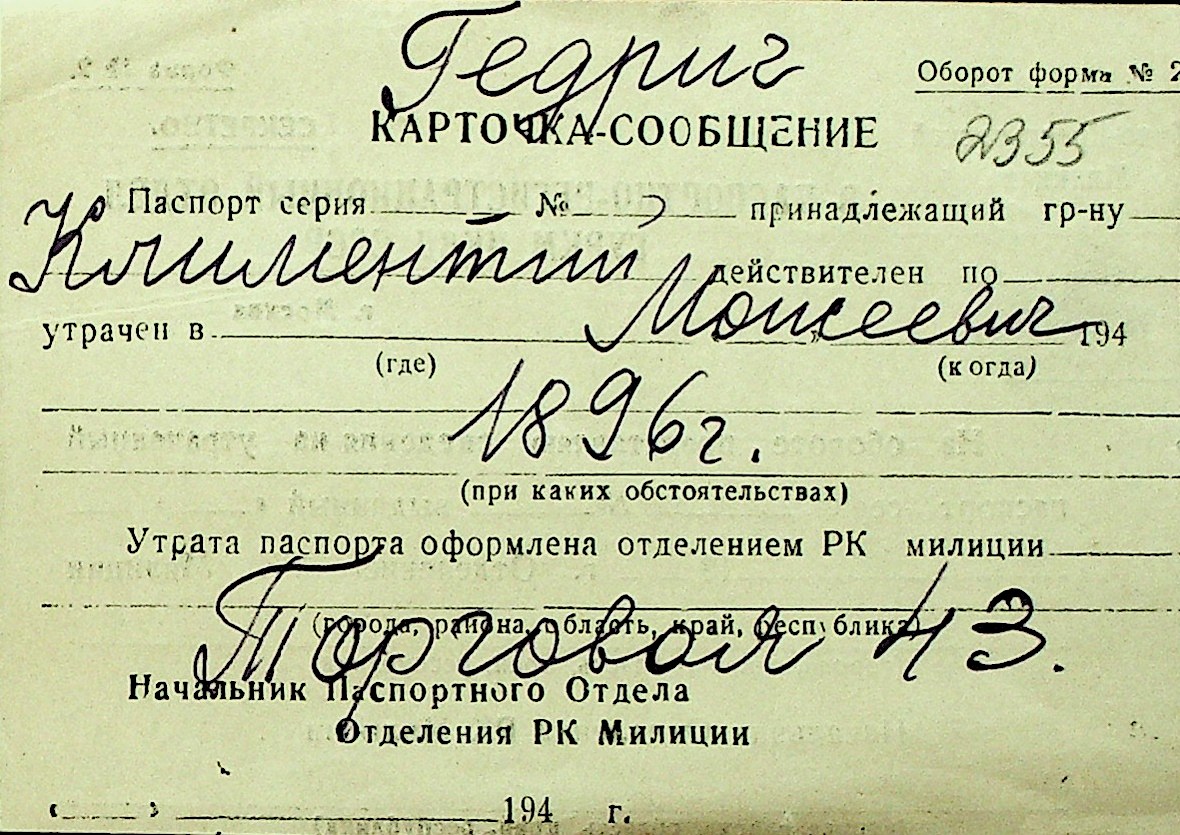 Гедриг
Оборот форма № 2
КАРТОЧКА-СООБЩЕНИЕ
2355
Паспорт серия № принадлежащий гр-ну
Климентий действителен по
Моисеевич
утрачен в „ 194
(где) (когда)
1896г.
(при каких обстоятельствах)
Утрата паспорта оформлена отделением РК милиции
(города, района, область, край, республика)
Торговая 43.
Начальник Паспортного Отдела
Отделения РК Милиции
« » 194 г.